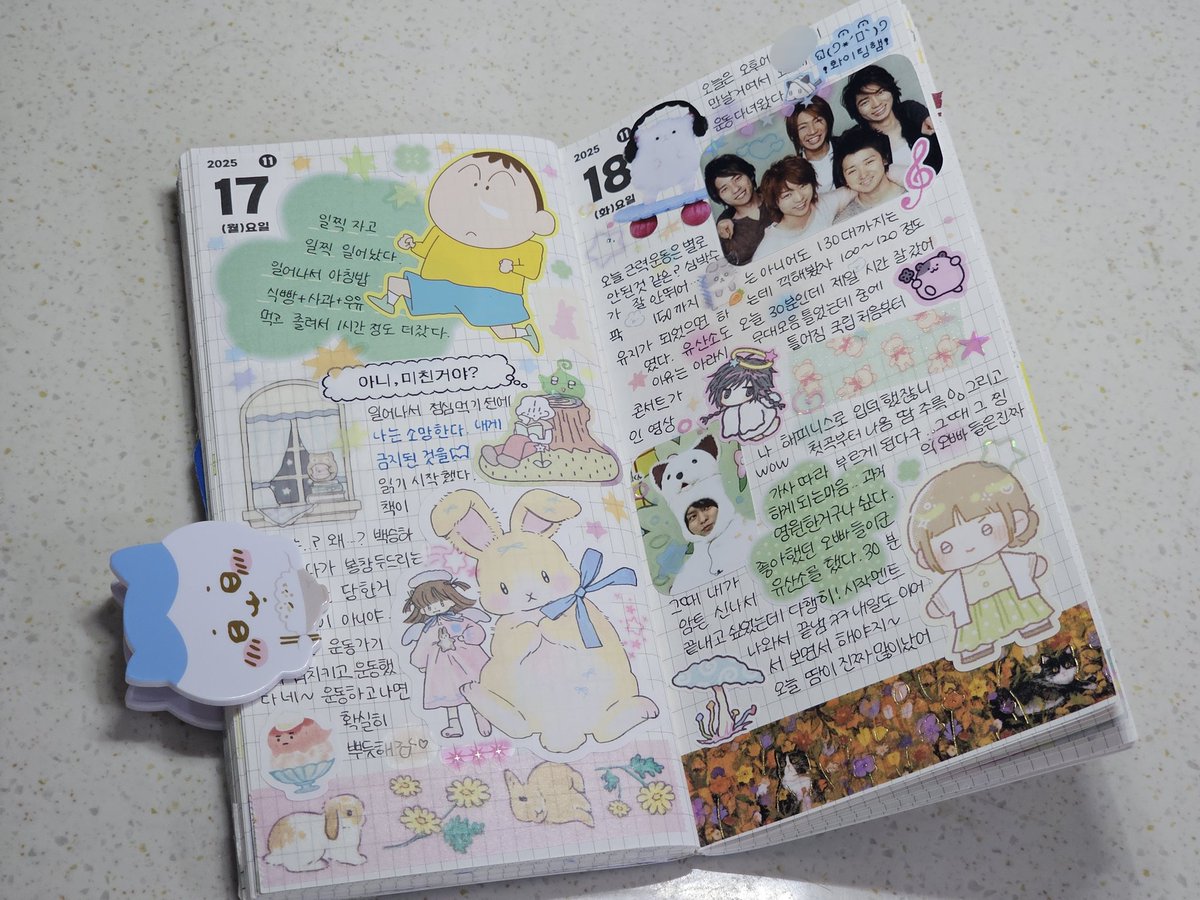 2025 11
17
(월)요일
일찍 자고
일찍 일어났다
일어나서 아침밥
식빵+사과+우유
먹고 졸려서 1시간 정도 더잤다.
아니, 미친거야?
일어나서 점심먹기 전에
나는 소망한다. 내게
금지된 것을
읽기 시작했다.
책이
..? 왜..? 백승하
가 봉창두드리는
당한거
이 아니야
운동가기
치키고 운동했
다네~ 운동하고나면
확실히
뿌듯해
2025 11
18
(화)요일
화이팅햄
오늘은 오후에
만날거여서
운동다녀왔다
오늘 근력운동은 별로
안된것 같은? 심박수
가 잘 안뛰어 는 아니어도 130대까지는
팍 150까지 하는데 끽해봤자 100~120 정도
유지가 되었으면 오늘 30분인데 제일 시간 잘갔어
였다. 유산소도 무대모음 틀었는데 중에
이유는 아라시 틀어짐 국립 처음부터
콘서트가
인 영상
나 해피니스로 입덕 했잖니
wow 첫곡부터 나옴 땀 주륵 그리고
가사 따라 부르게 된다구... 그때 그 찡
하게 되는마음.. 과거의 오빠 들은진짜
영원한거구나 싶다.
좋아했던 오빠들이군
유산소를 했다. 30분
그때 내가
암튼 신나서
끝내고 싶었는데 다행히! 시작멘트
나와서 끝냄 ㅋㅋ 내일도 이어
서 보면서 해야지~
오늘 땀이 진짜 많이났어